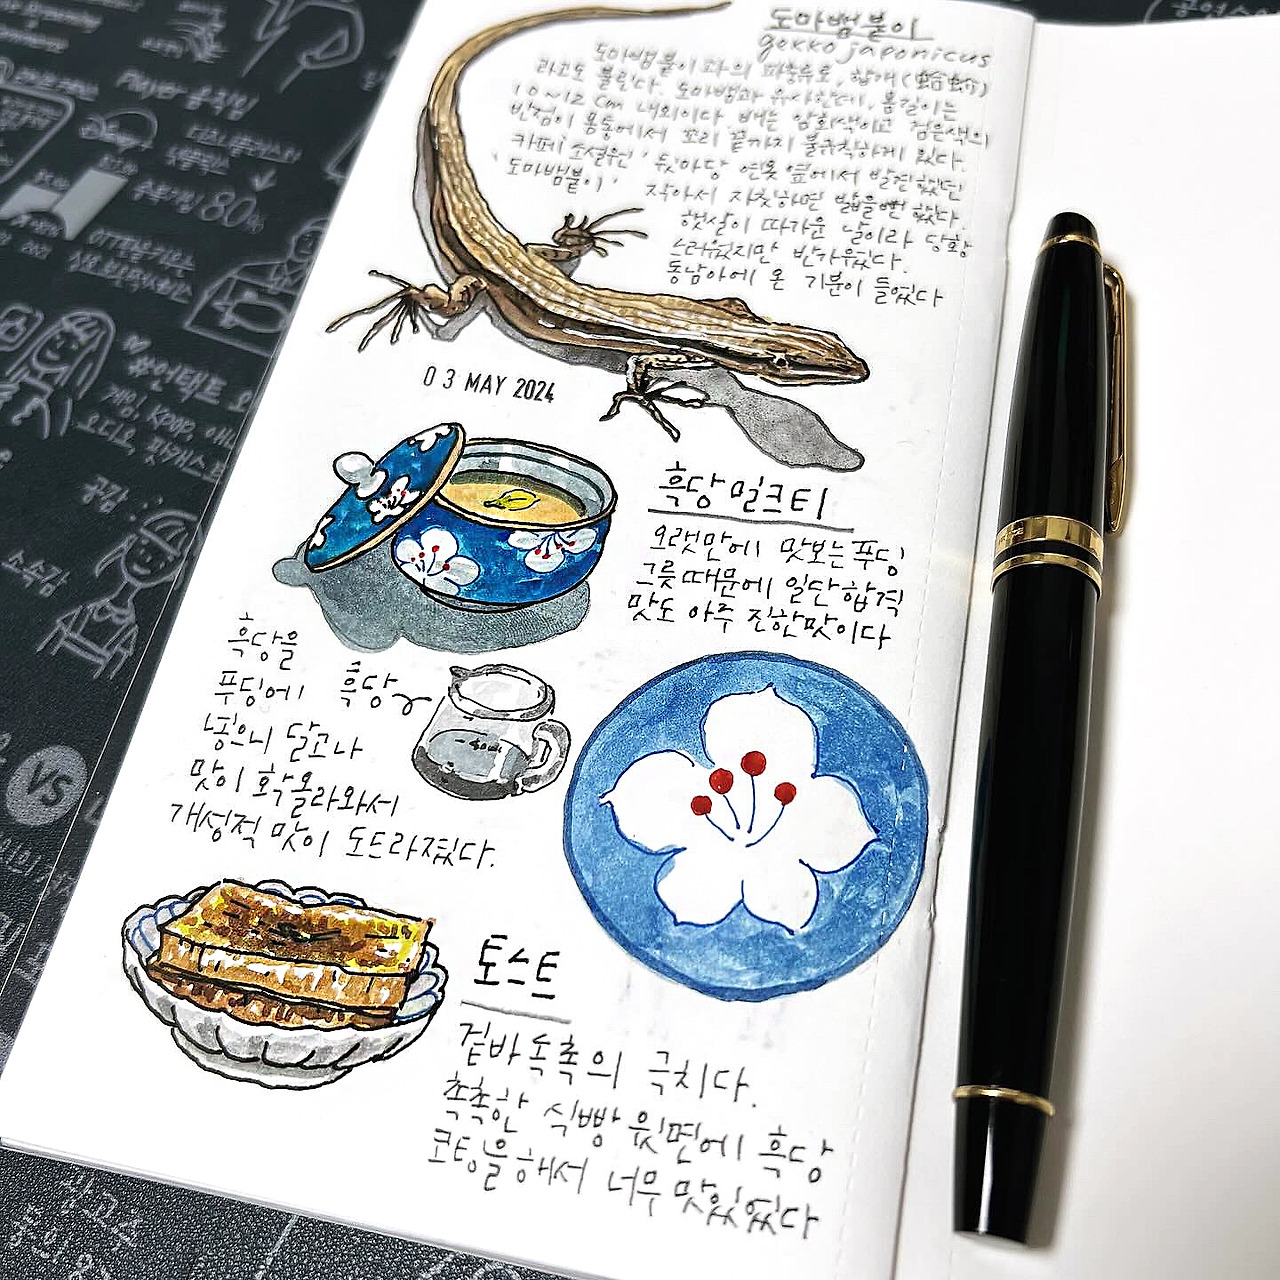 도마뱀붙이
gekko japonicus
도마뱀붙이과의 파충류로, 합개(蛤蚧)
라고도 불린다. 도마뱀과 유사한데, 몸길이는
10~12cm 내외이다. 배는 암회색이고 검은색의
반점이 몸통에서 꼬리 끝까지 불규칙하게 있다.
카페 '소설원' 뒷마당 연못 옆에서 발견했던
'도마뱀붙이' 작아서 자칫하면 밟을뻔 했다.
햇살이 따가운 날이라 당황
스러웠지만 반가웠다.
동남아에 온 기분이 들었다
03 MAY 2024
흑당 밀크티
오랜만에 맛보는 푸딩
그릇때문에 일단합격
맛도 아주 진한맛이다
흑당을
푸딩에
넣으니 달고나
맛이 확올라와서
개성적 맛이 도드라졌다.
흑당
토스트
겉바속촉의 극치다.
촉촉한 식빵 윗면에 흑당
코팅을해서 너무 맛있었다
공감:
소속감
VS
#언택트
게임, KPOP,
오디오, 팟캐스
Player 움직임
80%